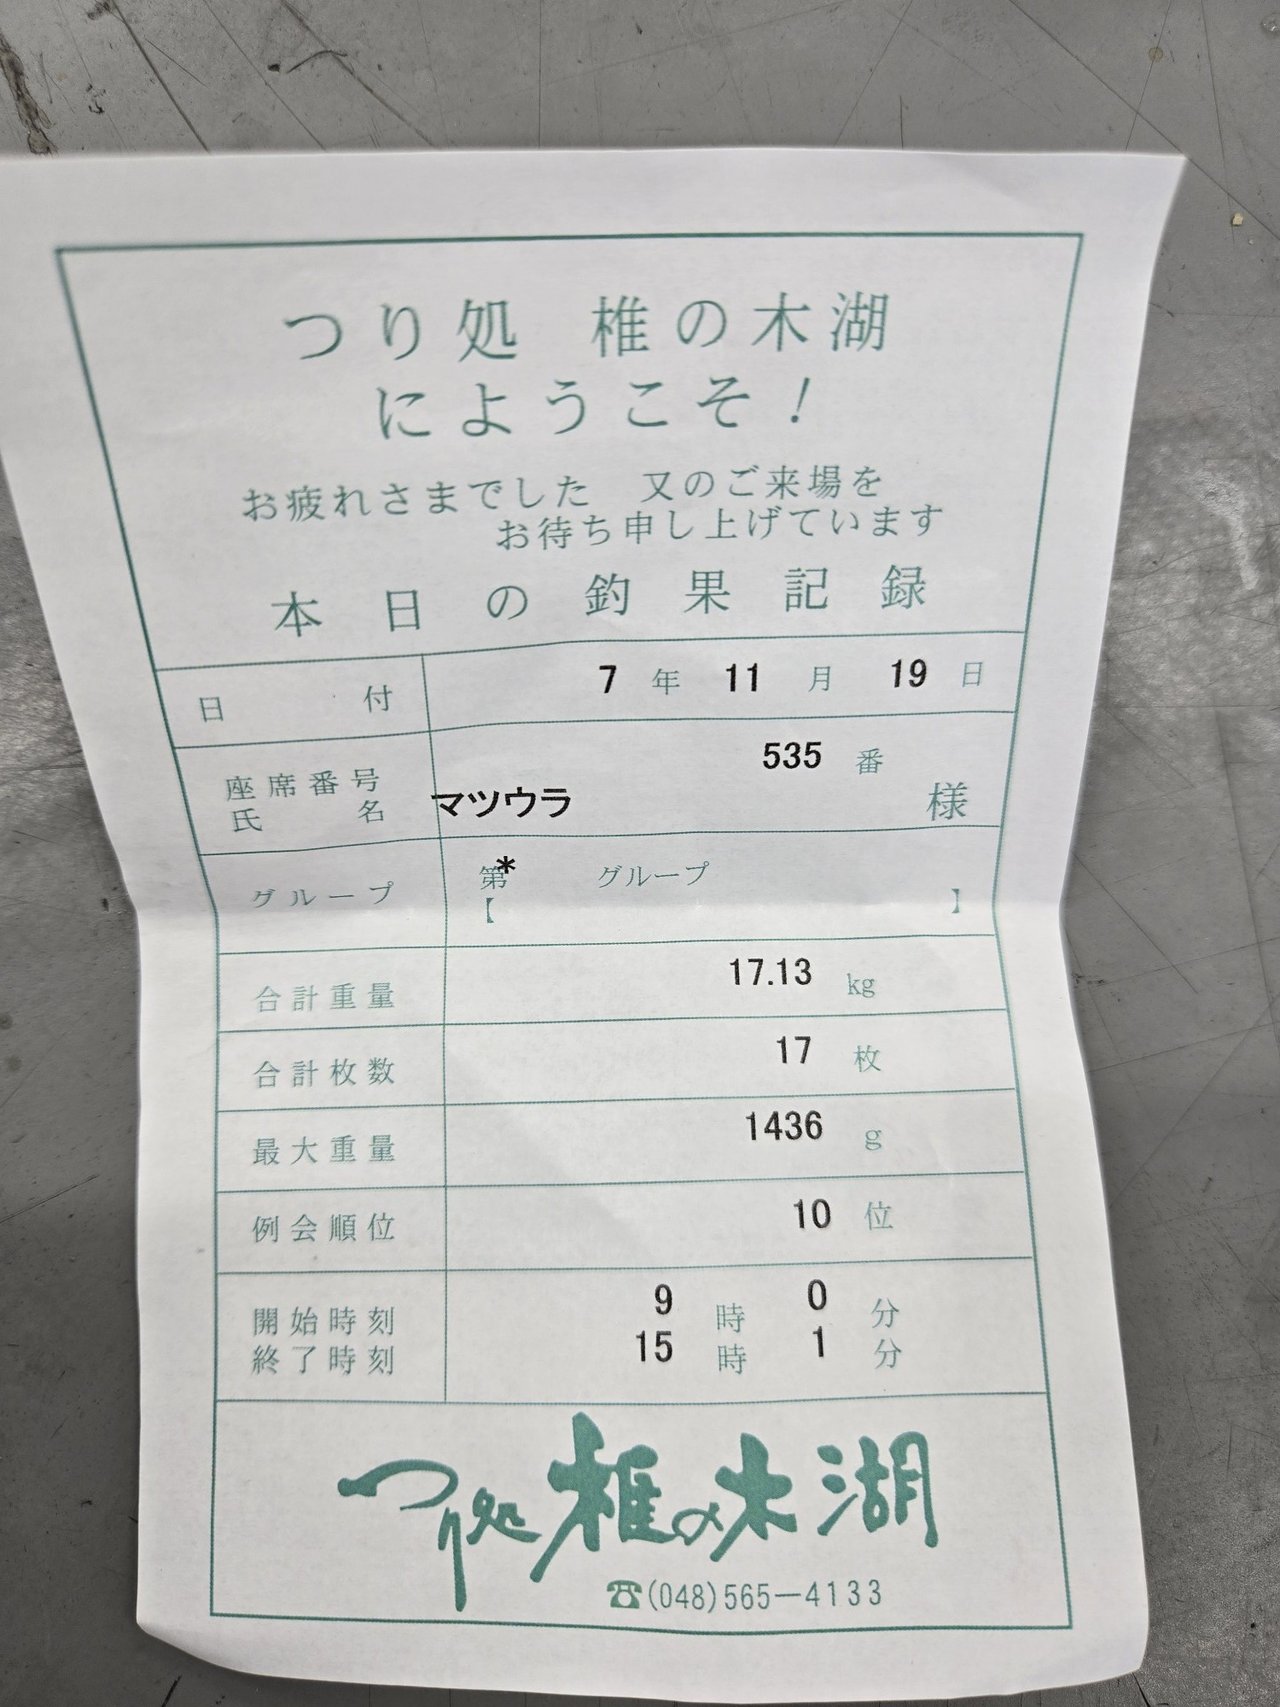 つり処 椎の木湖
にようこそ！
お疲れさまでした 又のご来場を
お待ち申し上げています
本日の釣果記録
日付 7年 11月 19日
座席番号 535番
氏名 マツウラ 様
グループ 第* グループ
【 】
合計重量 17.13 kg
合計枚数 17 枚
最大重量 1436 g
例会順位 10 位
開始時刻 9時 0分
終了時刻 15時 1分
つり処 椎の木湖
☎(048)565—4133